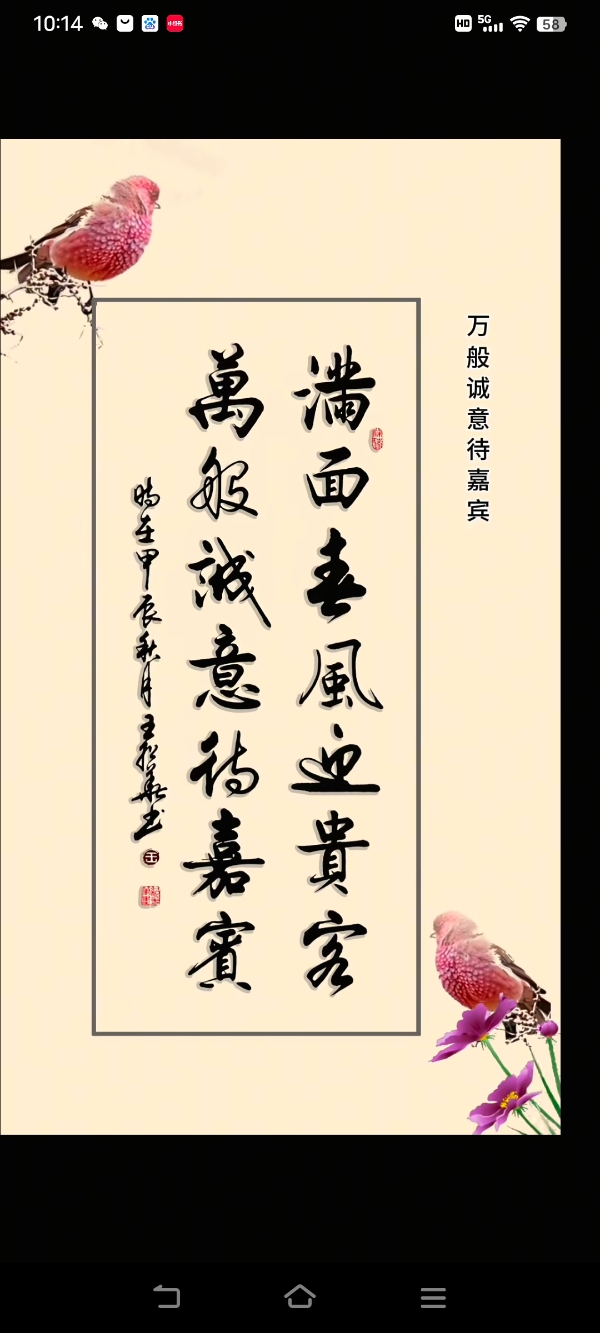 10:14
HD 5G 58
万般诚意待嘉宾
滿面春風迎貴客
萬般誠意待嘉賓
時在甲辰秋月王